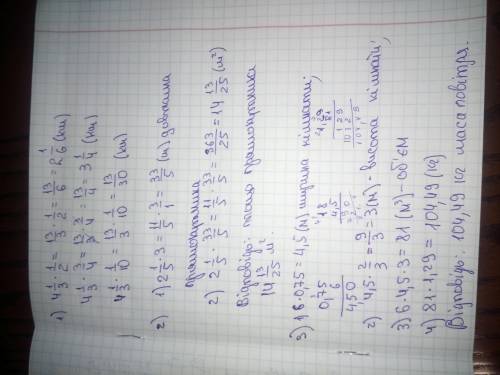 1) 4 1/3 · 1/2 = 13/3 · 1/2 = 13/6 = 2 1/6 (км)
4 1/3 · 3/4 = 13/3 · 3/4 = 13/4 = 3 1/4 (км)
4 1/3 · 1/10 = 13/3 · 1/10 = 13/30 (км)
2) 1) 2 1/5 · 3 = 11/5 · 3/1 = 33/5 (м) довжина
прямокутника
2) 2 1/5 · 33/5 = 11/5 · 33/5 = 363/25 = 14 13/25 (м²)
Відповідь: площа прямокутника
14 13/25 м².
3) 1) 6 · 0,75 = 4,5 (м) ширина кімнати;
0,75
6
4,50
2) 4,5 · 2/3 = 9/3 = 3 (м) - висота кімнати;
3) 6 · 4,5 · 3 = 81 (м³) - об'єм
4) 81 · 1,29 = 104,49 (кг)
Відповідь: 104,49 кг маса повітря.